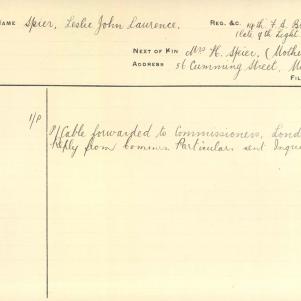 NAME Speer, Leslie John Laurence. REG. &C. 14th F. A. B
(late 4th Light
NEXT OF KIN Mrs H. Speier, (Mother
ADDRESS 56 Cumming Street, M
FIL
1/P P/Cable forwarded to Commissioners, Lond
Reply from Commrs. Particulars sent Inqui